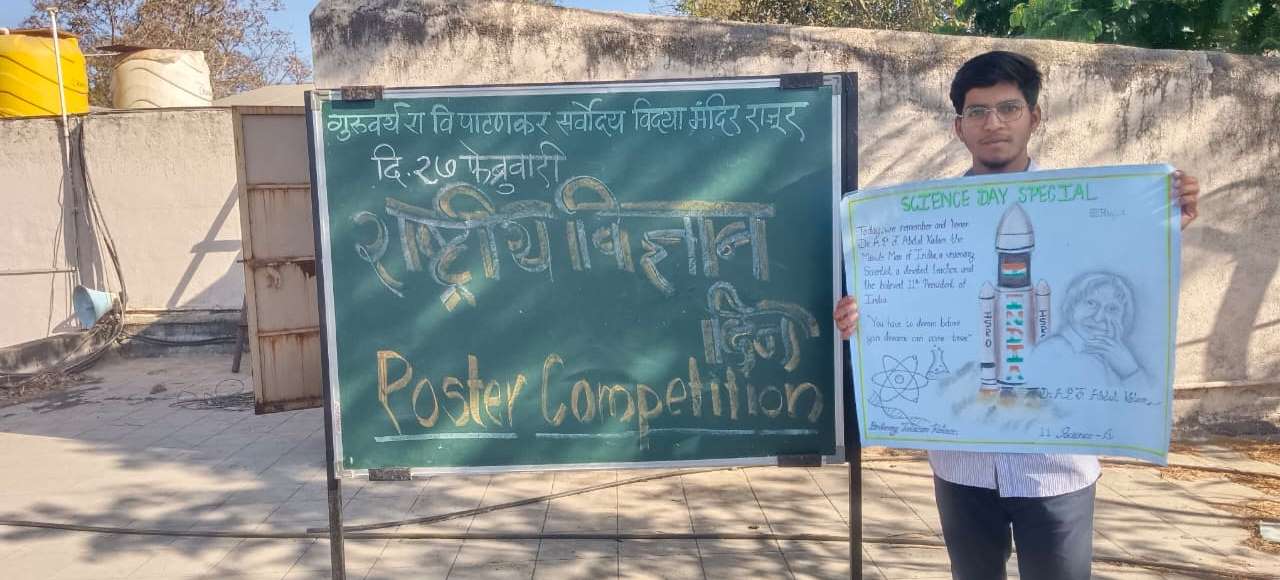 गुरुवर्य रा वि पाटणकर सर्वोदय विद्या मंदिर राजूर
दि. २७ फेब्रुवारी
राष्ट्रीय विज्ञान
दिन
Poster Competition
SCIENCE DAY SPECIAL
Today, we remember and honor
Dr. A. P. J. Abdul Kalam the
Missile Man of India, a visionary
Scientist, a devoted teacher, and
the beloved 11th President of
India.
"You have to dream before
your dreams can come true"
ISRO
ISRO
Dr. A. P. J. Abdul Kalam
11 Science-A